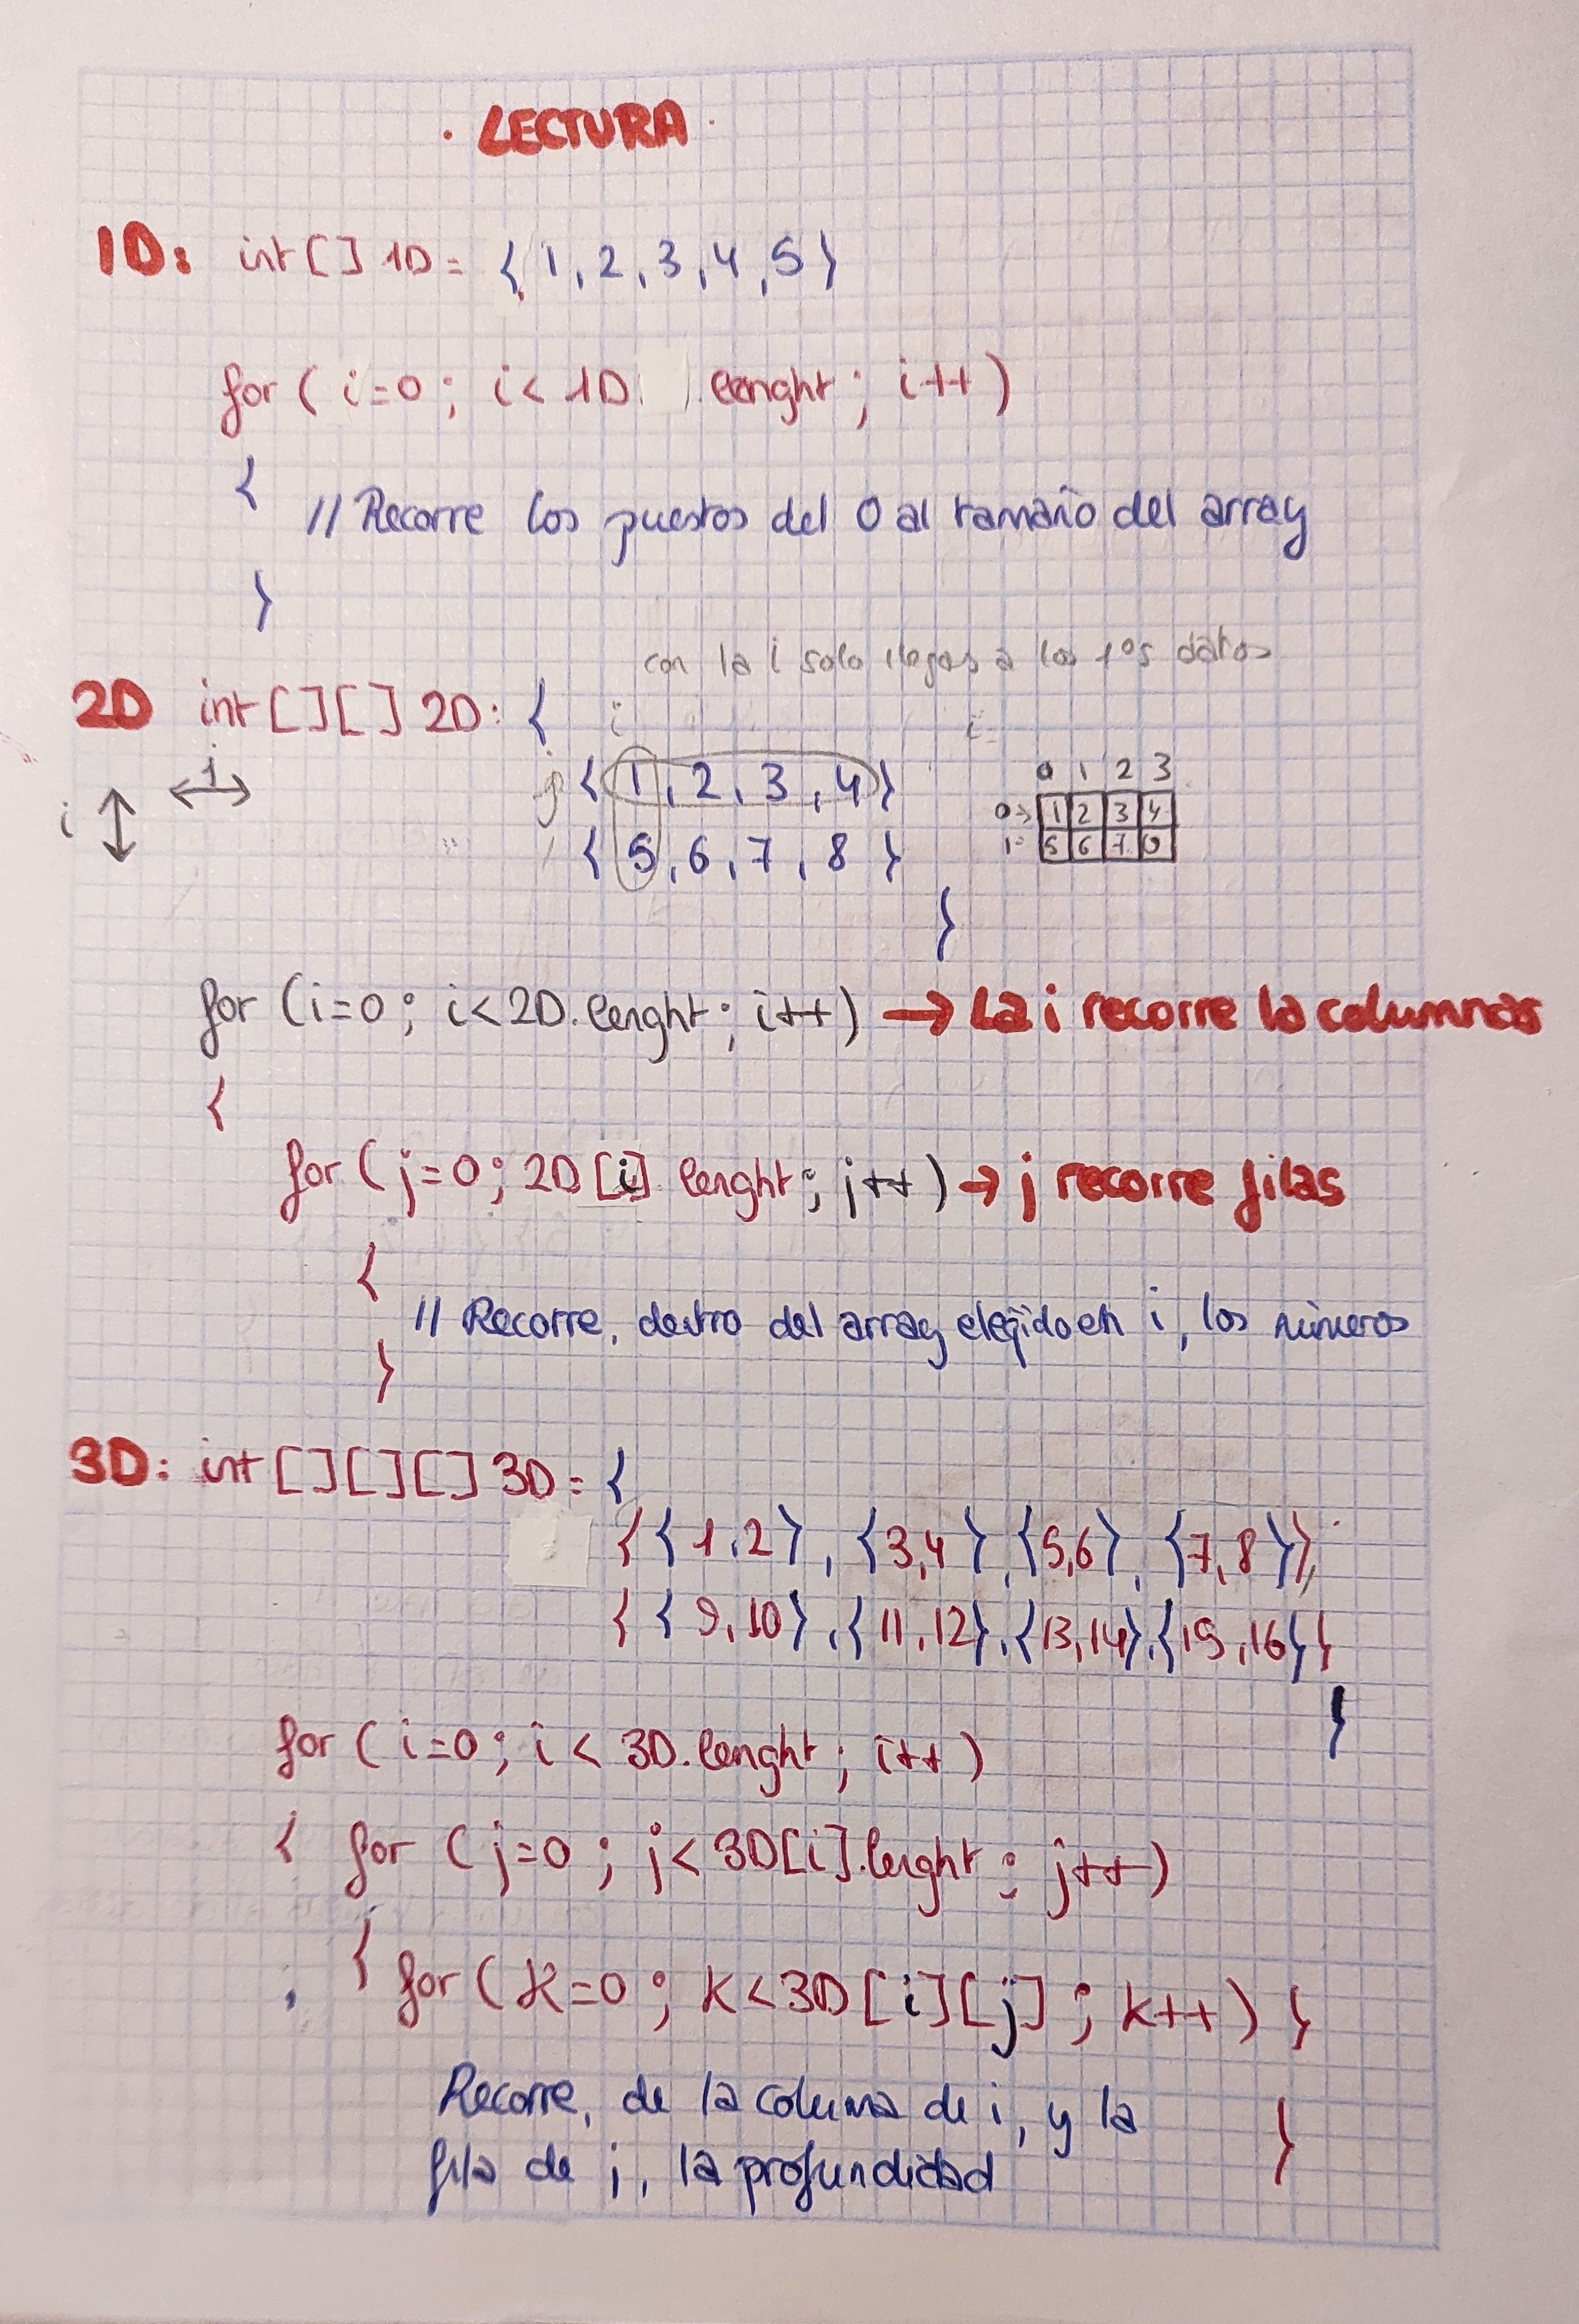 . LECTURA .
1D: int [] 1D = { 1, 2, 3, 4, 5 }
for ( i=0 ; i < 1D . lenght ; i++ )
{ // Recorre los puestos del 0 al tamaño del array
}
con la i solo llegas a los 1os datos
2D int [][] 2D: { i i=
j
i
j { 1, 2, 3, 4 }
{ 5, 6, 7, 8 }
0 1 2 3
0→ 1 2 3 4
1= 5 6 7 8
}
for (i=0 ; i<2D.lenght ; i++) → La i recorre la columnas
{
for ( j=0 ; 2D [i]. lenght ; j++ ) → j recorre filas
{
// Recorre, dentro del array elegido en i, los números
}
3D: int [][][] 3D = {
{ { 1,2 }, { 3,4 }, { 5,6 }, { 7,8 } },
{ { 9,10 }, { 11,12 }, { 13,14 }, { 15,16 } }
}
for ( i=0 ; i < 3D.lenght ; i++ )
{ for ( j=0 ; j< 3D[i].lenght ; j++ )
{ for ( k=0 ; k<3D [i][j] ; k++ ) }
Recorre, de la columna de i, y la
fila de j, la profundidad
}